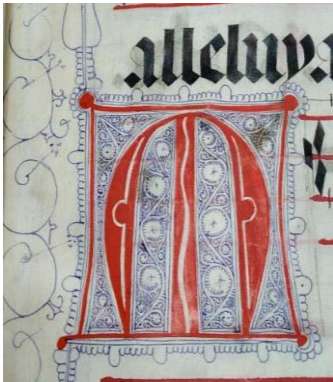 alleluya
M